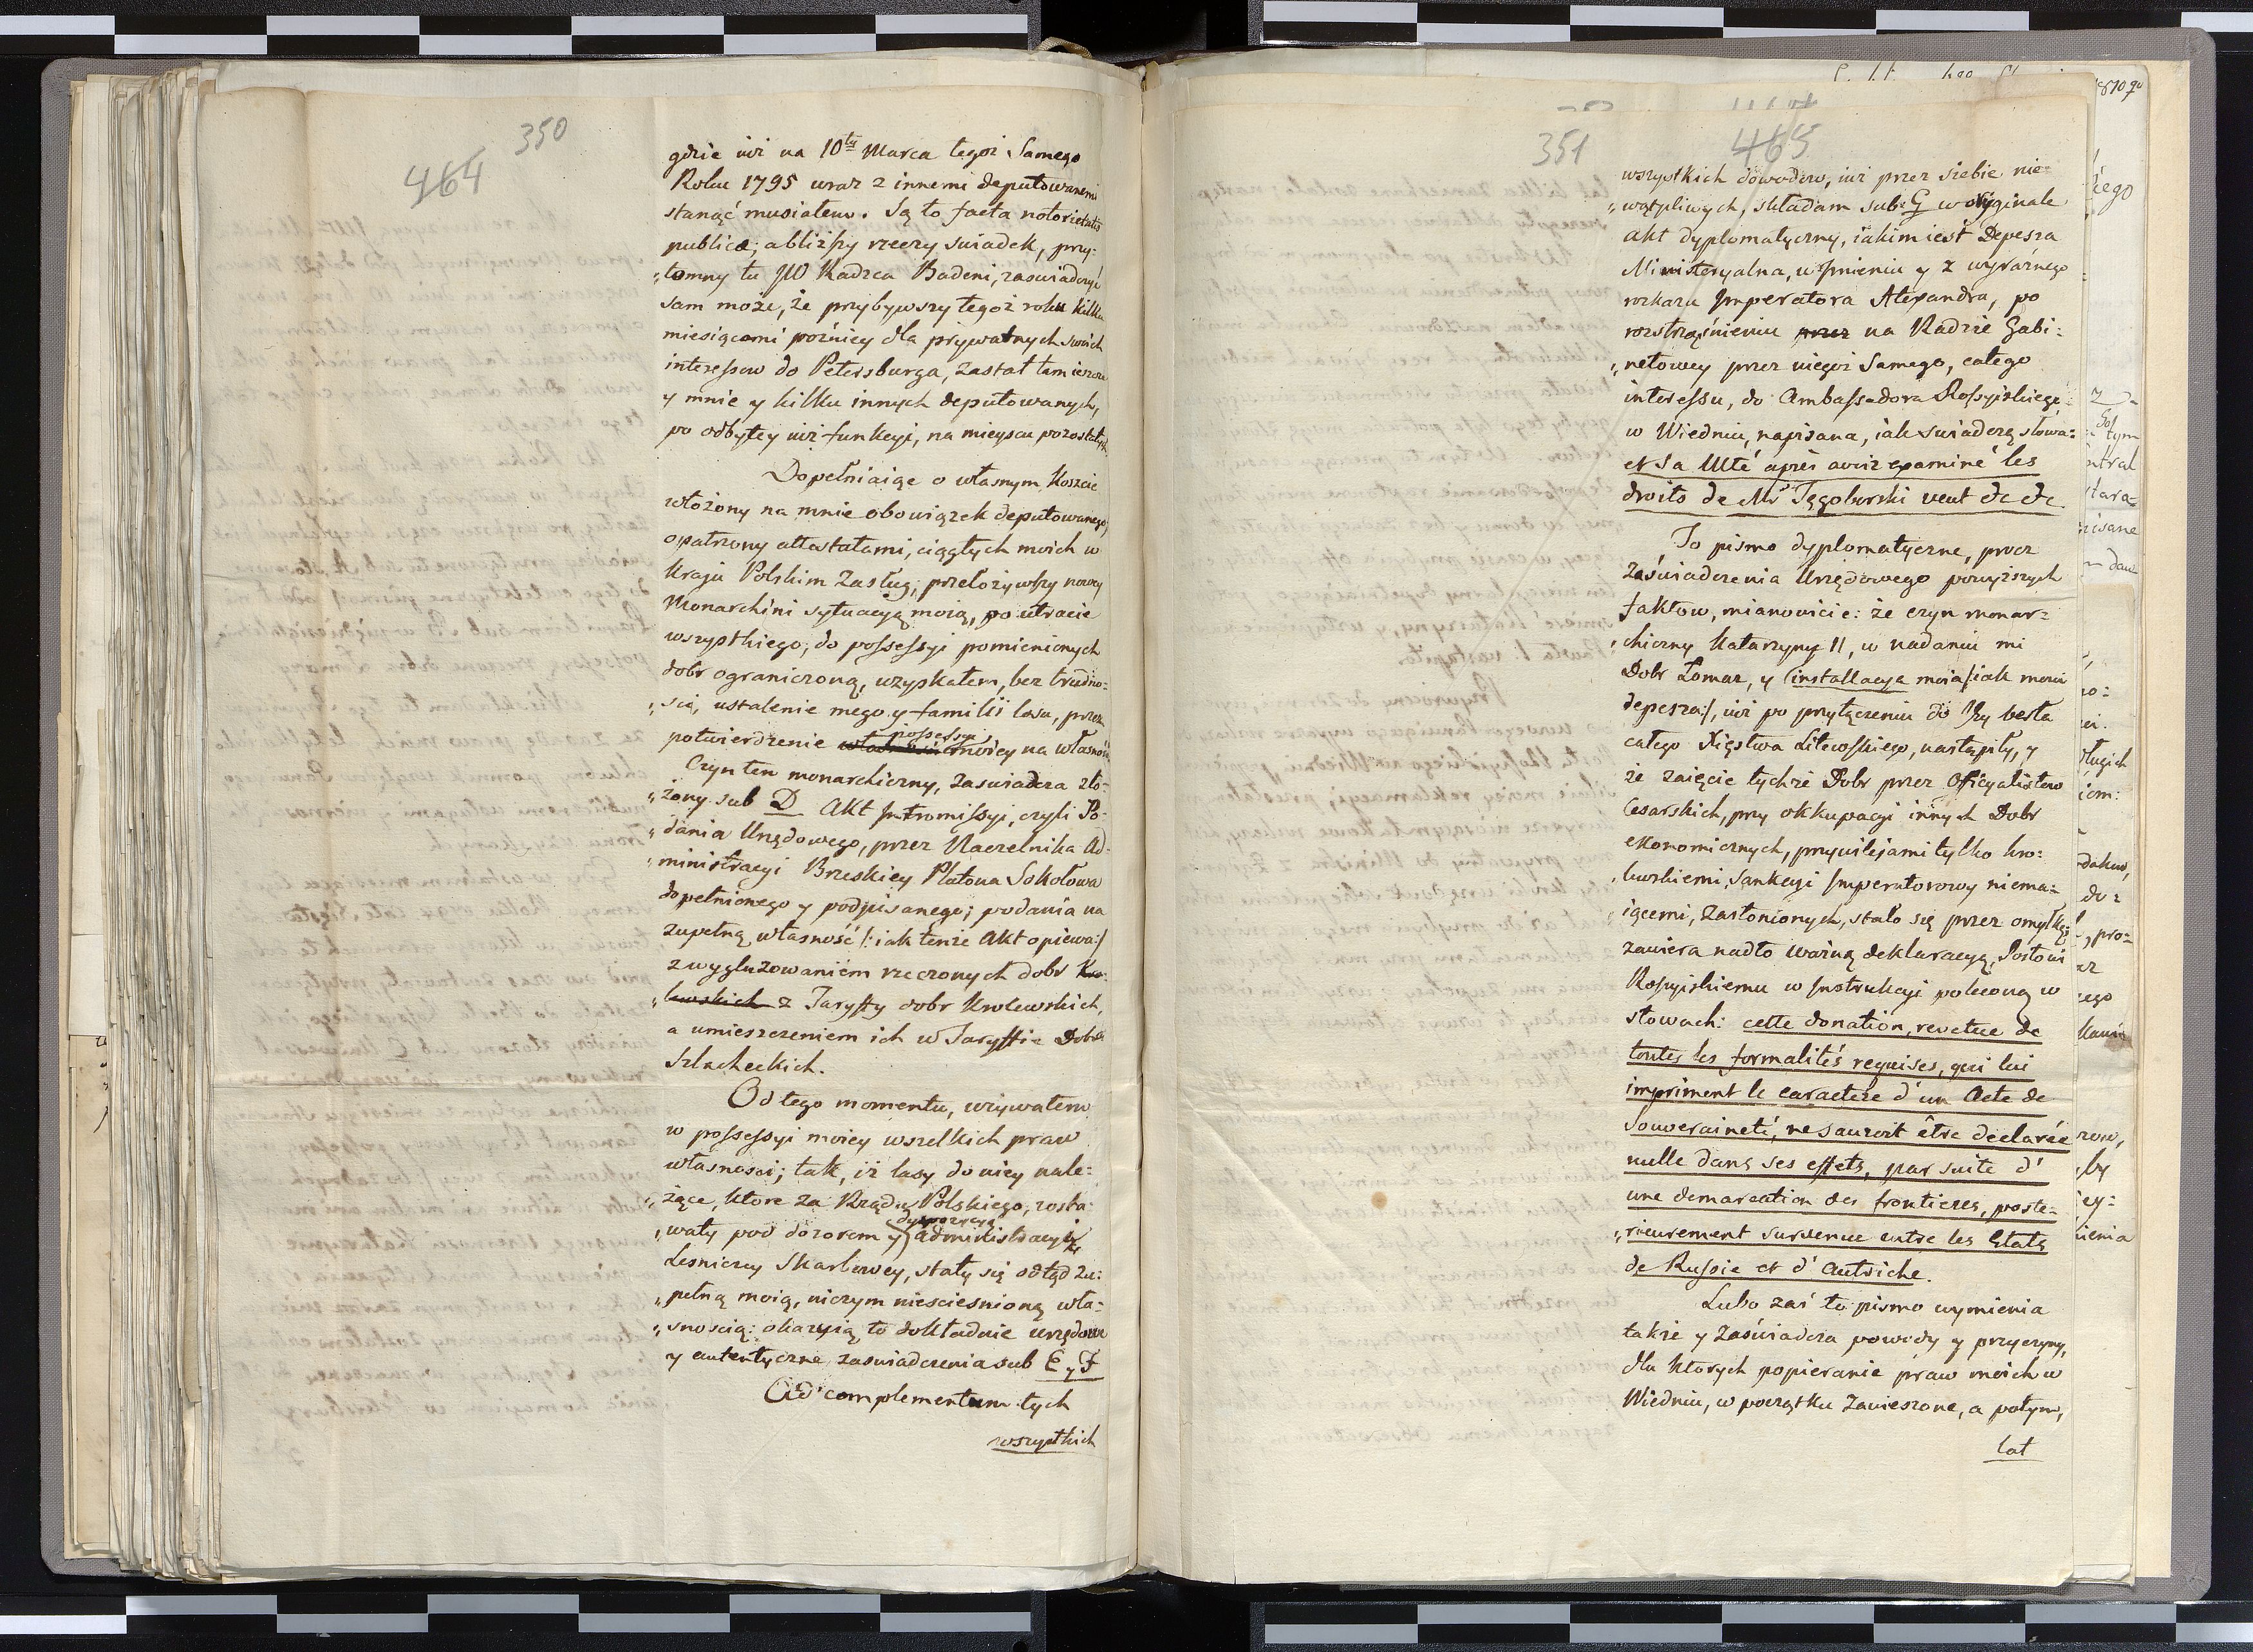 350
464
gdzie iuż na 10ty Marca tegoż Samego
Roku 1795 wraz z innemi deputowanemi
stanąć musiałem. Są to facta notorietatis
publicæ; a bliższy rzeczy swiadek, przy=
„tomny tu JW Radzca Badeni, zaswiadczyć
sam może, że przybywszy tegoż roku kilku
miesiącami poźniey dla prywatnych swoich
interessow do Petersburga, zastał tam ieszcze
y mnie y kilku innych deputowanych,
po odbytey iuż funkcyi, na mieyscu pozostałych.
Dopełniaiąc o własnym Koszcie
włożony na mnie obowiązek deputowanego,
opatrzony attestatami, ciągłych moich w
Kraju Polskim Zasług; przełożywszy nowey
Monarchini sytuacyą moią, po utracie
wszystkiego, do possessyi pomienionych
dobr ograniczoną, uzyskałem, bez trudno=
„sci, ustalenie mego y familii losu, przez
possessyi
potwierdzenie własności moiey na własność.
Czyn ten monarchiczny, zaswiadcza zło=
„żony sub D Akt Intromissyi, czyli Po=
„dania Urzędowego, przez Naczelnika Ad=
„ministracyi Brzeskiey Platona Sokołowa
dopełnionego y podpisanego; podania na
zupełną własność /: iak tenże Akt opiewa:/
z wygluzowaniem rzeczonych dobr Kro=
„lewskich z Taryffy dobr Krolewskich,
a umieszczeniem ich w Taryffie Dobr
Szlacheckich.
Od tego momentu, używałem
w possessyi moiey wszelkich praw
własnosci; tak, iż lasy do niey nale=
„żące, ktore za Rządu Polskiego, zosta=
dyspozycyą
„wały pod dozorem y administracyi
Lesniczey Skarbowey, stały się odtąd zu=
„pełną moią, niczym niescieśnioną wła=
„snoscią: okazuią to dokładnie urzędowe
y autentyczne zaswiadczenia sub E y F
Ad complementum tych
wszystkich
351
465
wszystkich dowodow, iuż przez siebie nie=
„wątpliwych, składam sub: G w oryginale
Akt dyplomatyczny, iakim iest Depesza
Ministeryalna, w Imieniu y z wyraźnego
rozkazu Imperatora Alexandra, po
rozstrząśnieniu przez na Radzie Gabi=
„netowey przez niegoż Samego, całego
interessu, do Ambassadora Rossyiskiego
w Wiedniu, napisana, iak swiadczą słowa:
et Sa Mté après avoir examiné les
droits de Mr Tęgoborski veut &c &c.
To pismo dyplomatyczne, procz
Zaświadczenia Urzędowego powyższych
faktow, mianowicie: że czyn monar=
„chiczny Katarzyny II, w nadaniu mi
Dobr Łomaz, y installacya moia /: iak mowi
depesza:/, iuż po przyłączeniu do Jey berła
całego Xięstwa Litewskiego, nastąpiły, y
że zaięcie tychże Dobr przez Officyalistow
Cesarskich, przy okkupacyi innych Dobr
ekonomicznych, przywilejami tylko kro=
„lewskiemi, Sankcyi Imperatorowy niema=
„iącemi, zasłonionych, stało się przez omyłkę;
zawiera nadto ważną deklaracyą, Posłowi
Rossyiskiemu w Instrukcyi poleconą w
słowach: cette donation, revetue de
toutes les formalités requises, qui lui
impriment le caractere d'un Acte de
Souveraineté, ne sauroit être declarée
nulle dans ses effets, par suite d'
une demarcation des frontieres, poste=
„rieurement survenue entre les Etats
de Russie et d'Autriche.
Lubo zaś to pismo wymienia
także y Zaświadcza powody y przyczyny,
dla ktorych popieranie praw moich w
Wiedniu, w początku Zawieszone, a potym,
lat